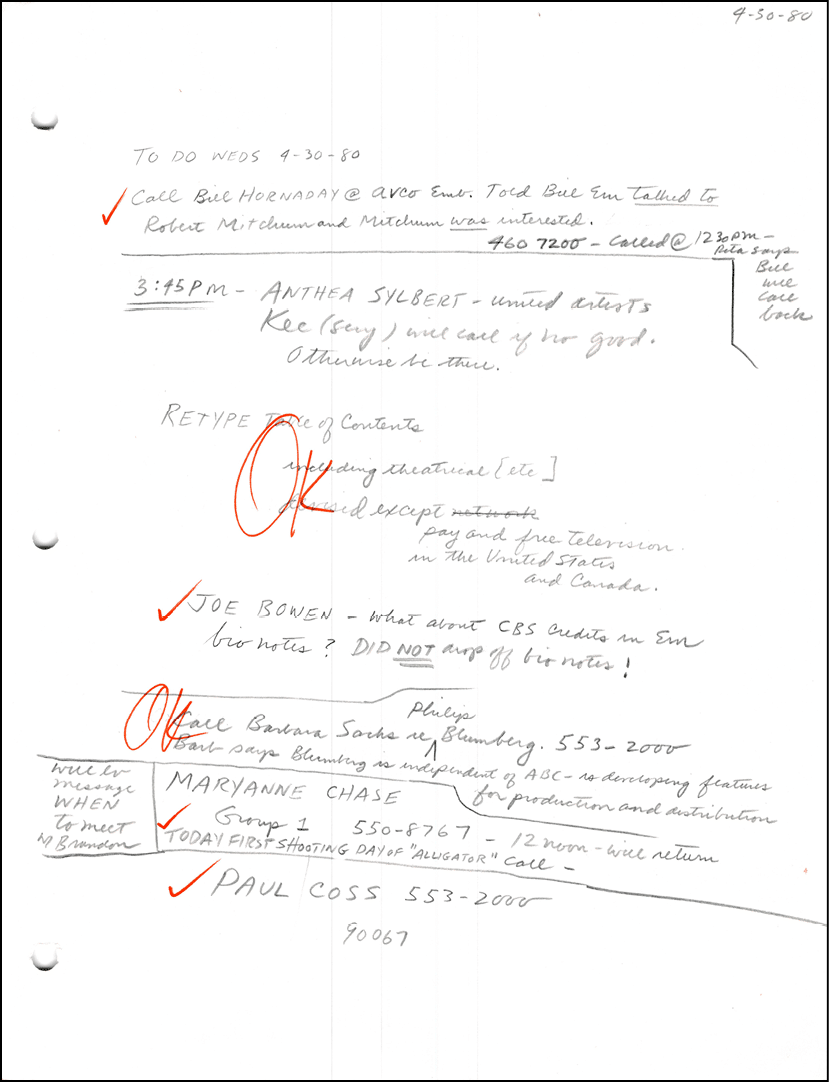 4-30-80
TO DO WEDS 4-30-80
Call Bill HORNADAY @ avco Emb. Told Bill Em talked to
Robert Mitchum and Mitchum was interested.
460 7200 - Called @ 1230pm -
Rita says
Bill
will
call
back
3:45PM - ANTHEA SYLBERT - united artists
(secy) will call if no good.
Otherwise be there.
RETYPE Table of Contents
including theatrical [etc]
OK
except network
pay and free television
in the United States
and Canada.
JOE BOWEN - what about CBS credits in Em
bio notes? DID NOT drop off bio notes!
OK
Philip
Call Barbara Sachs re Blumberg. 553-2000
Barb says Blumberg is independent of ABC - is developing features
for production and distribution
will lv
message
WHEN
to meet
w/ Brandon
MARYANNE CHASE
Group 1 550-8767 - 12 noon - will return
TODAY FIRST SHOOTING DAY OF "ALLIGATOR" call -
PAUL COSS 553-2000
90067